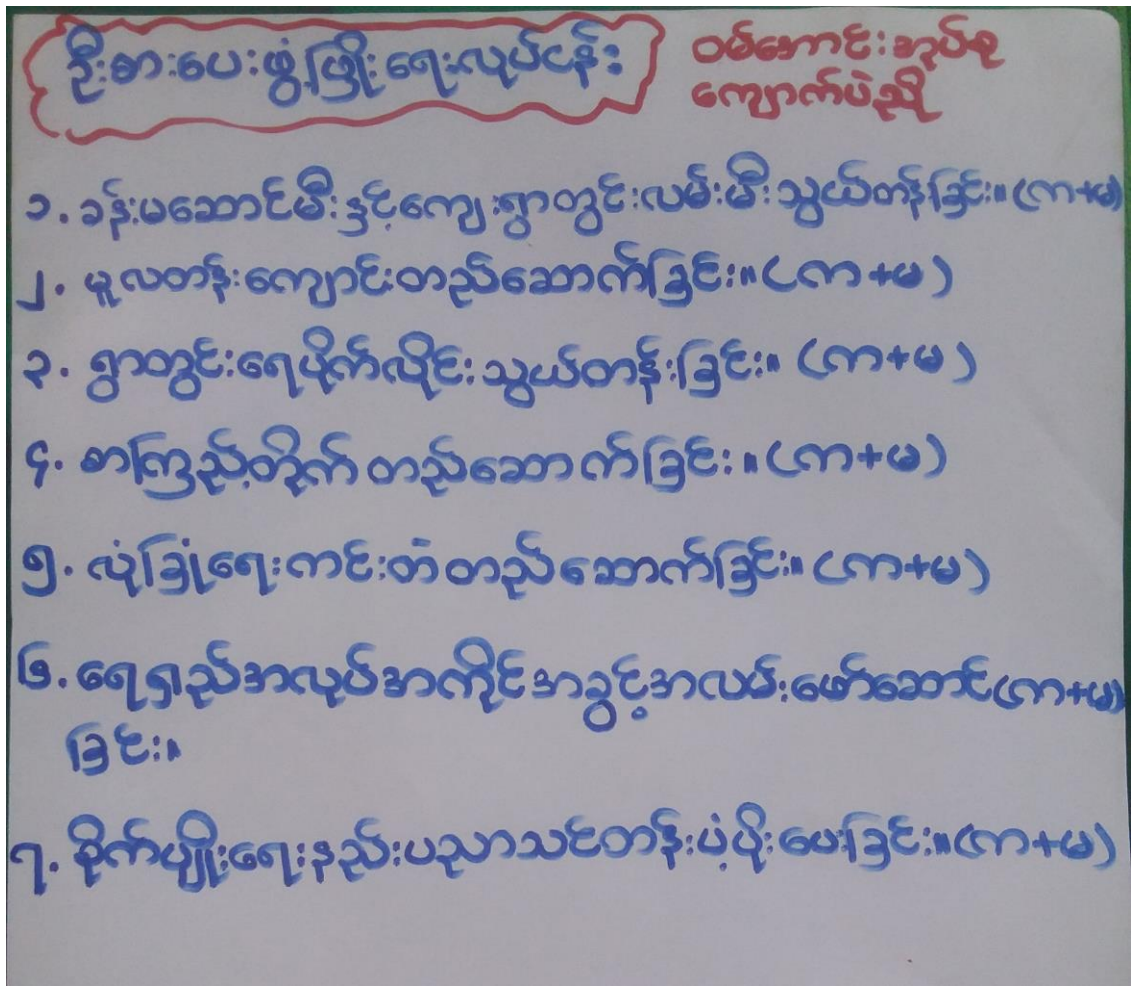 ဦးစားပေးဖွံ့ဖြိုးရေးလုပ်ငန်း
ဝမ်အောင်းအုပ်စု
ကျောက်ပဲညို
၁. ခန်းမဆောင်မီးနှင့်ကျေးရွာတွင်းလမ်းမီးသွယ်တန်ခြင်း။ (က+မ)
၂. မူလတန်းကျောင်းတည်ဆောက်ခြင်း။ (က+မ)
၃. ရွာတွင်းရေပိုက်လိုင်းသွယ်တန်းခြင်း။ (က+မ)
၄. စာကြည့်တိုက်တည်ဆောက်ခြင်း။ (က+မ)
၅. လုံခြုံရေးကင်းတဲတည်ဆောက်ခြင်း။ (က+မ)
၆. ရေရှည်အလုပ်အကိုင်အခွင့်အလမ်းဖော်ဆောင် (က+မ)
ခြင်း။
၇. စိုက်ပျိုးရေးနည်းပညာသင်တန်းပံ့ပိုးပေးခြင်း။ (က+မ)